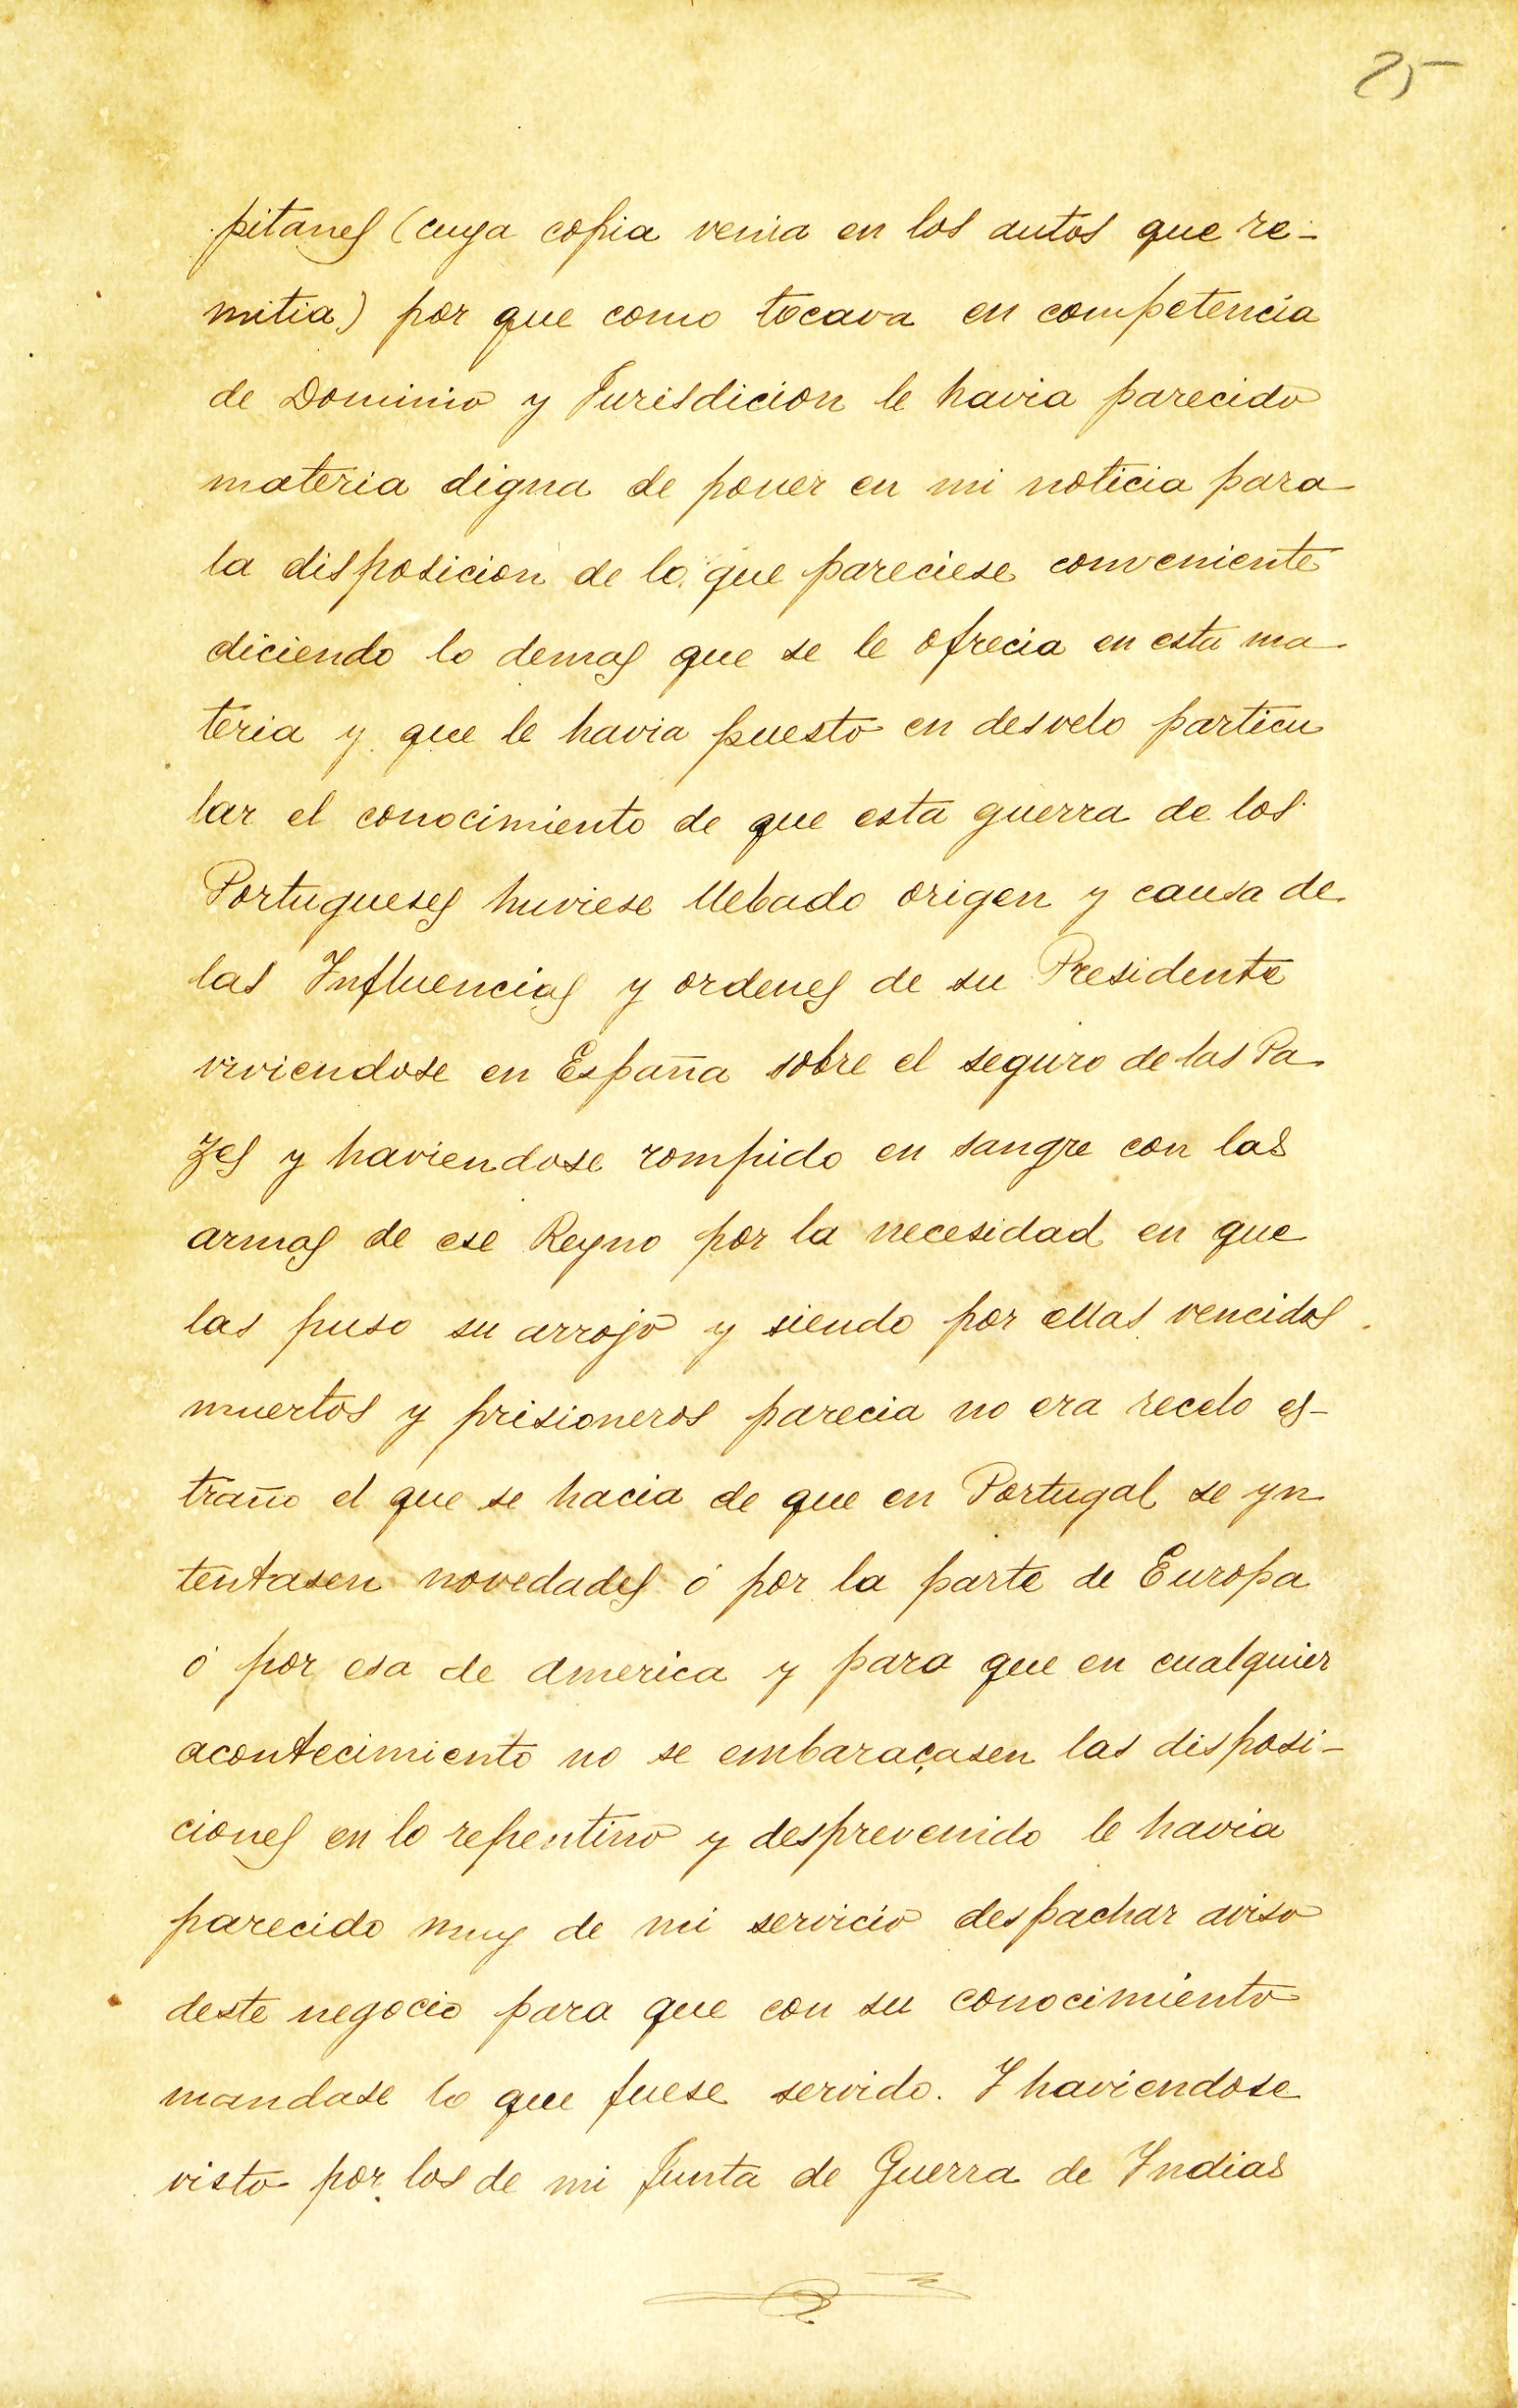 25
pitanes (cuya copia venia en los autos que re-
mitia) por que como tocava en competencia
de Dominio y Jurisdicion le havia parecido
materia digna de poner en mi noticia para
la disposicion de lo que pareciese conveniente
diciendo lo demas que se le ofrecia en esta ma-
teria y que le havia puesto en desvelo particu
lar el conocimiento de que esta guerra de los
Portugueses huviese llebado origen y causa de
las Influencias y ordenes de su Presidente
viviendose en España sobre el seguro de las Pa
zes y haviendose rompido en sangre con las
armas de ese Reyno por la necesidad en que
las puso su arrojo y siendo por ellas vencidos
muertos y prisioneros parecia no era recelo es-
traño el que se hacia de que en Portugal se yn
tentasen novedades ó por la parte de Europa
ó por esa de America y para que en cualquier
acontecimiento no se embaraçasen las disposi-
ciones en lo repentino y desprevenido le havia
parecido muy de mi servicio despachar aviso
deste negocio para que con su conocimiento
mandase lo que fuese servido. Y haviendose
visto por los de mi Junta de Guerra de Indias